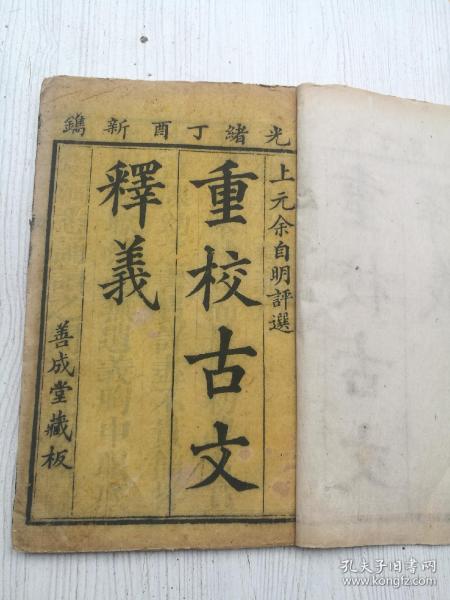 光緒丁酉新鐫
上元余自明評選
重校古文
釋義
善成堂藏板
孔夫子旧书网
www.kongfz.com